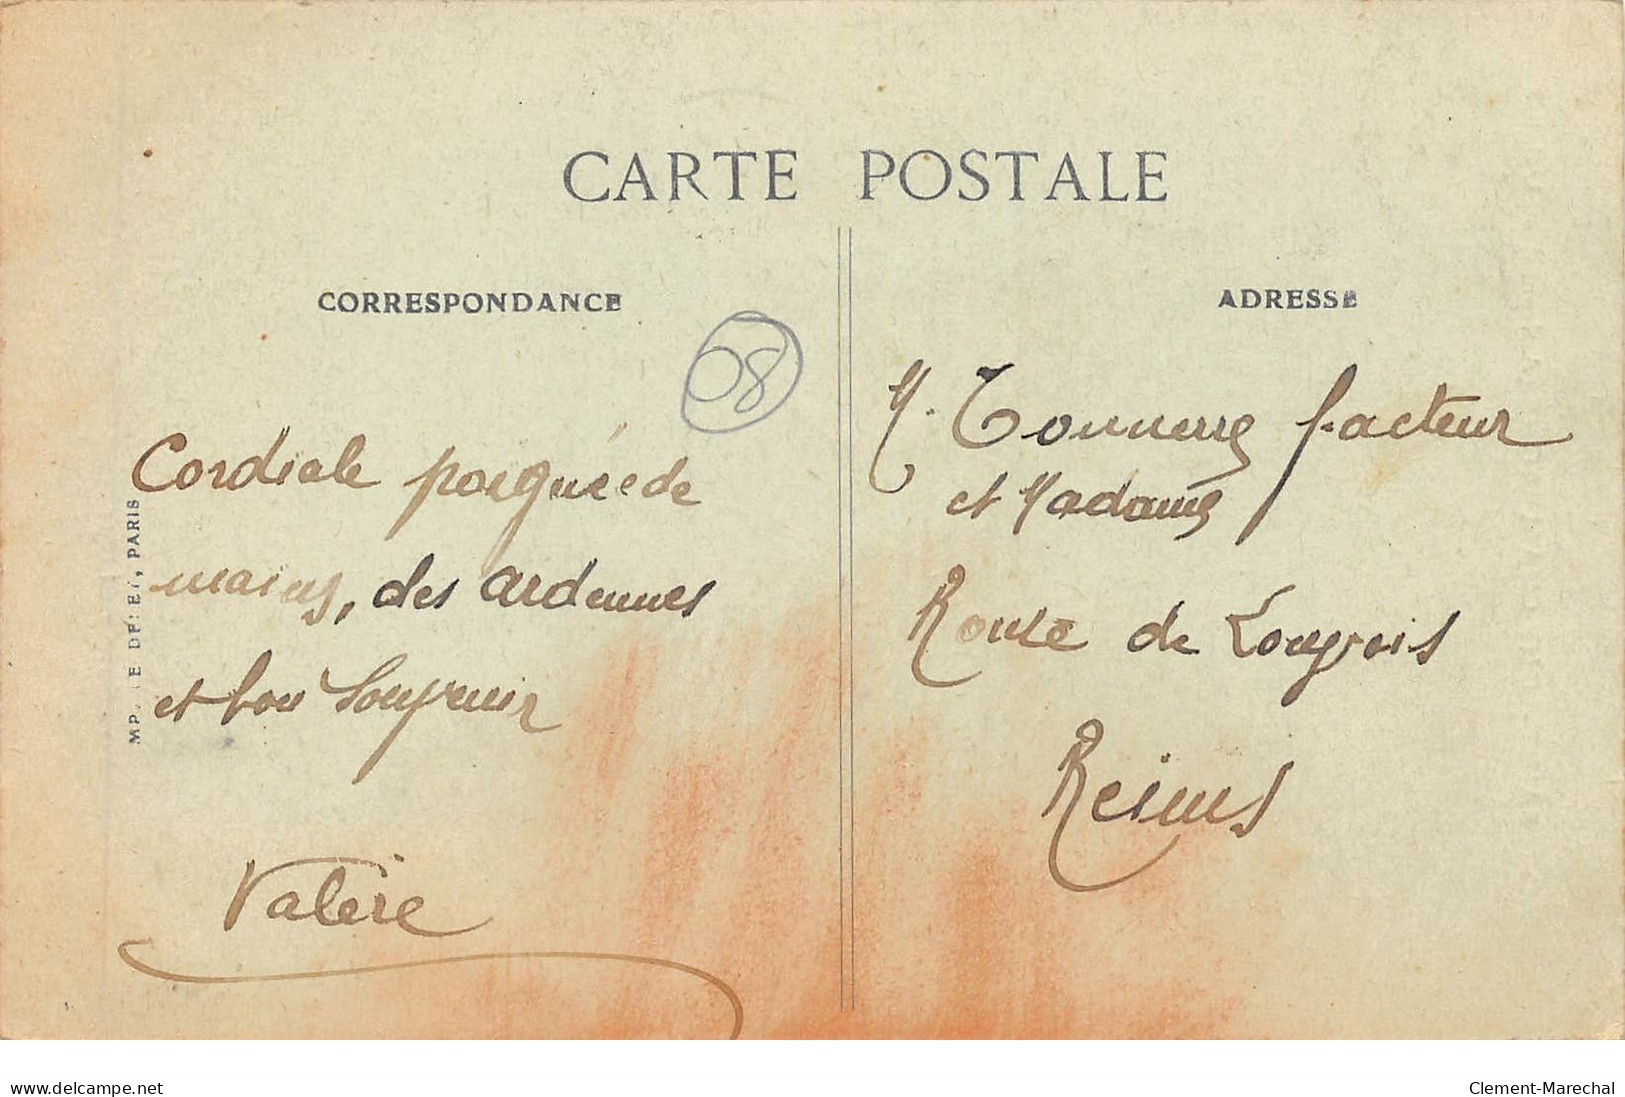 CARTE POSTALE
CORRESPONDANCE
ADRESSE
08
Cordiale poignée de
mains, des ardennes
et bon Souvenir
Valère
M. Tonnerre facteur
et Madame
Route de Louvois
Reims
DE, PARIS
www.delcampe.net
Clement-Marechal